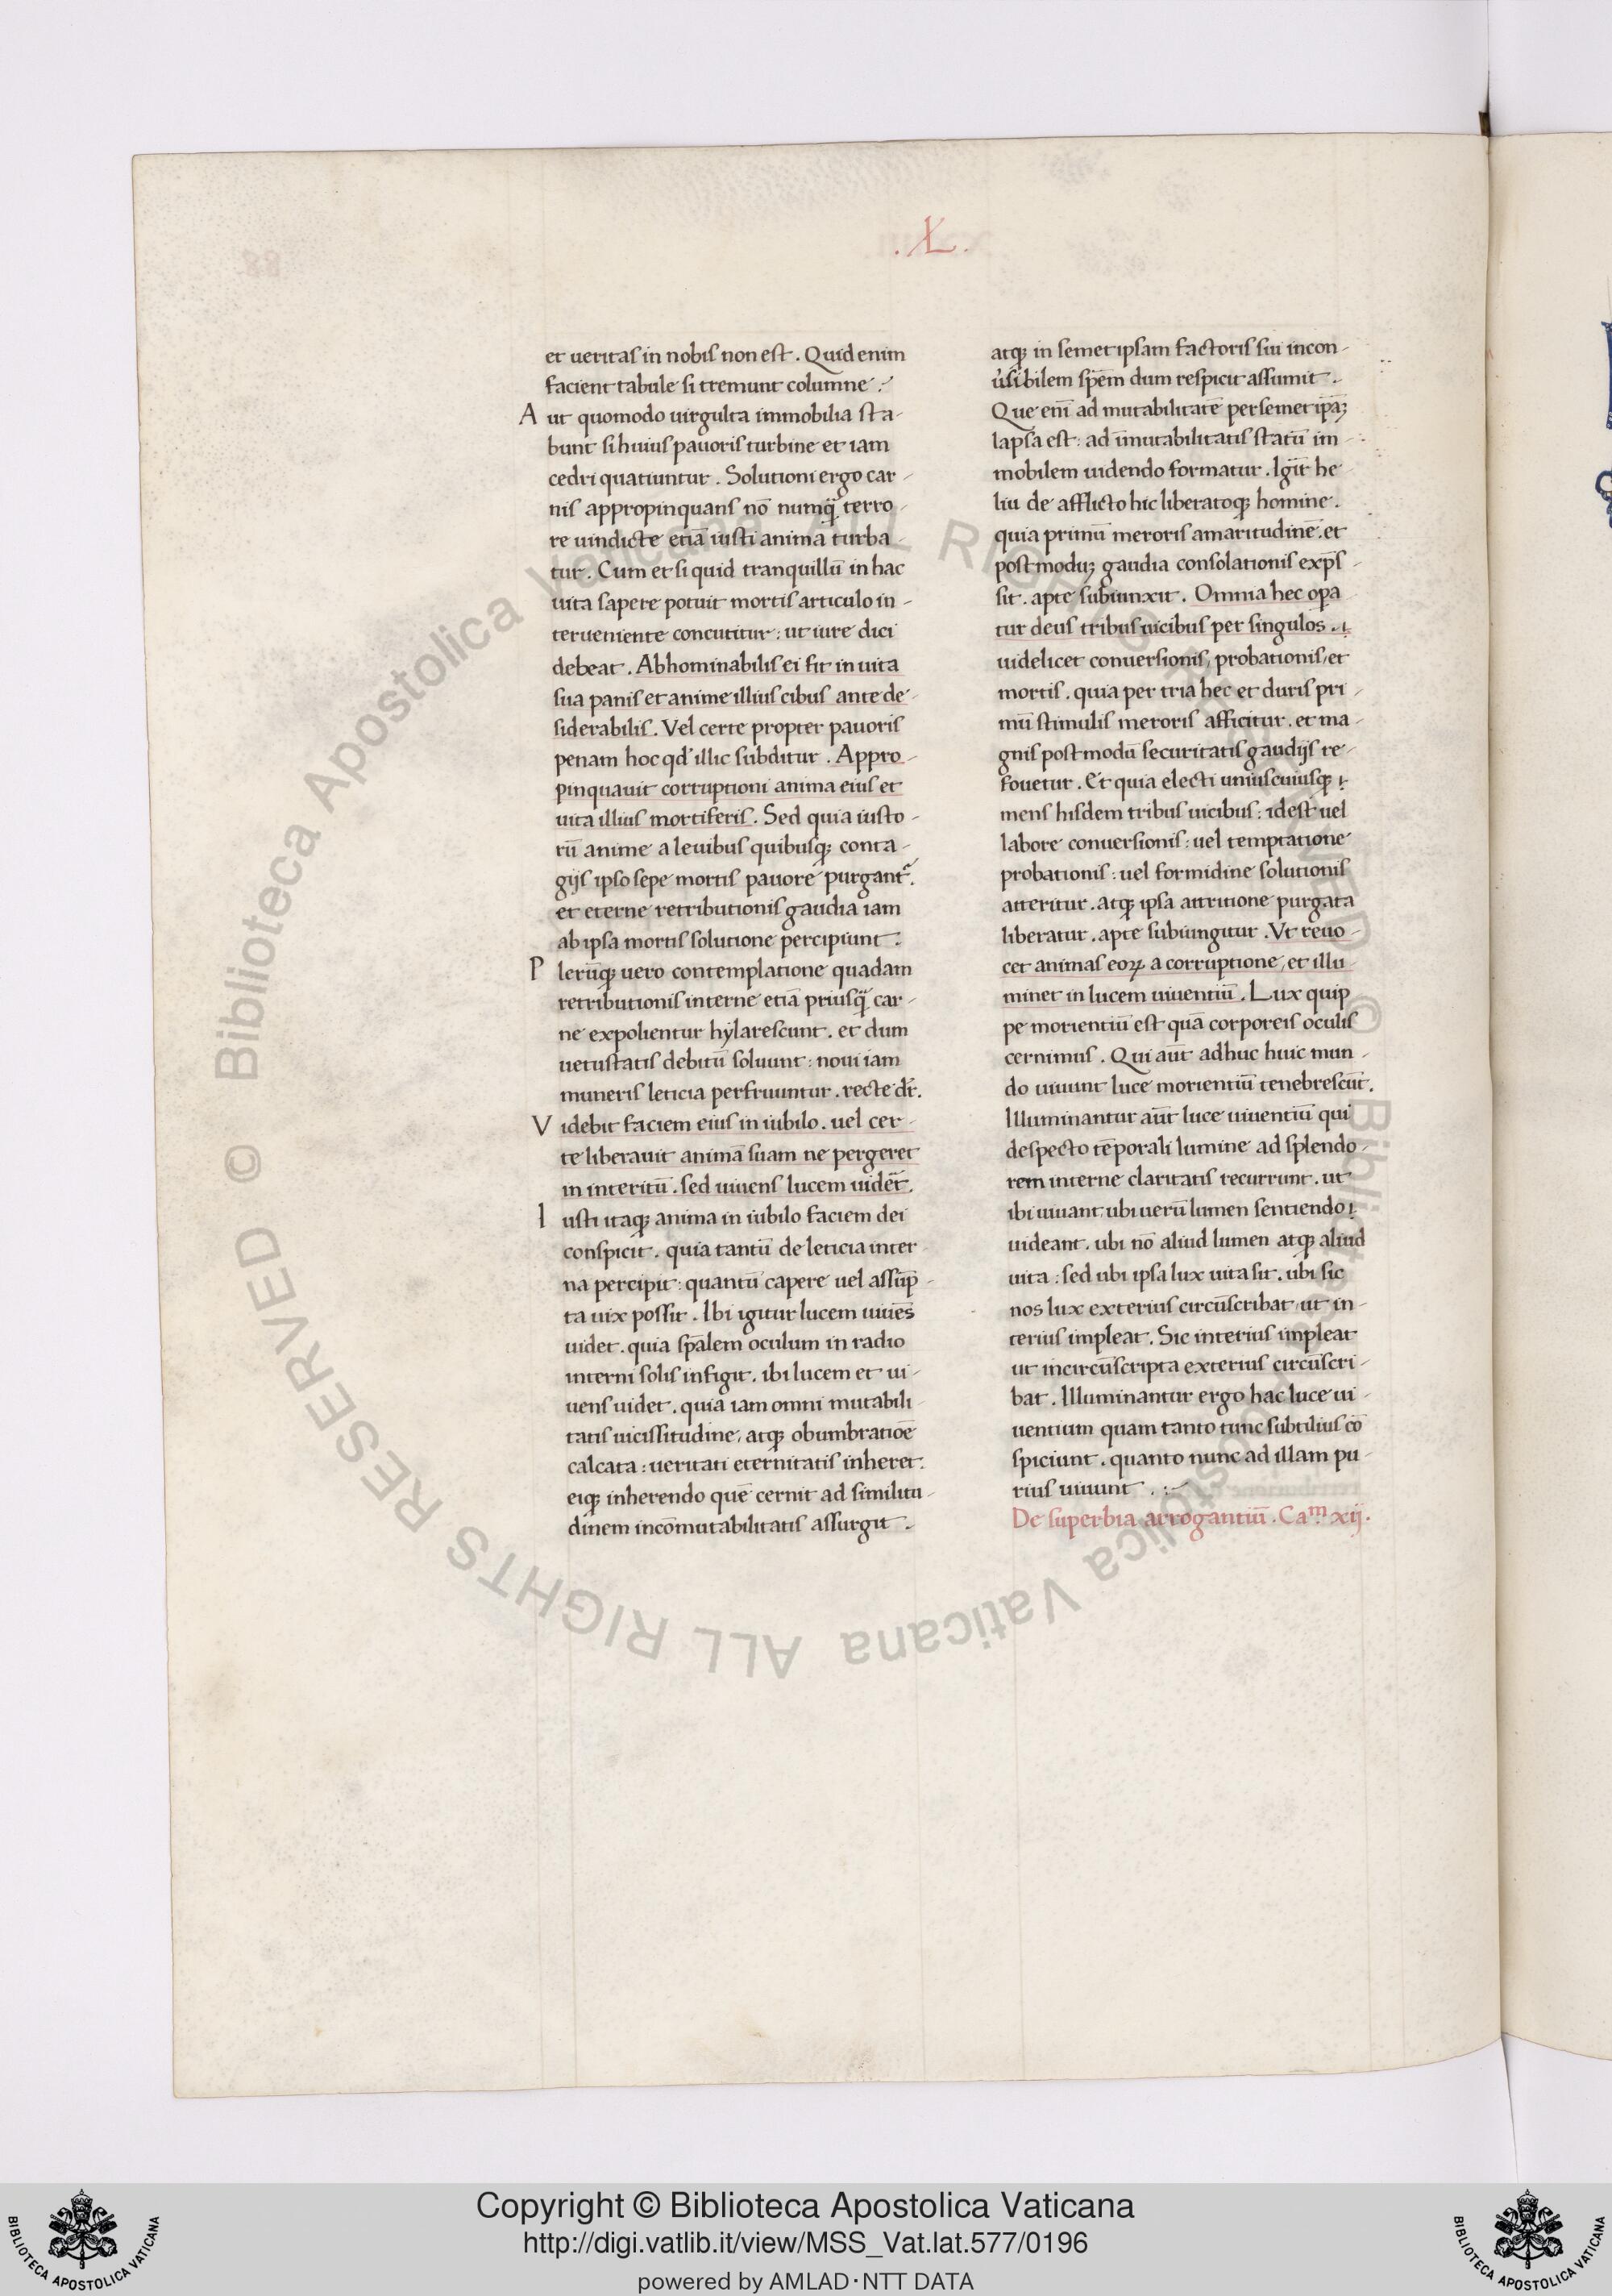 .XL.
et ueritas in nobis non est . Quid enim
facient tabule si tremunt columne .
A ut quomodo uirgulta immobilia sta-
bunt si huius pauoris turbine et iam
cedri quatiuntur . Solutioni ergo car-
nis appropinquans nō numq̄ terro-
re uindicte etiā iusti anima turba-
tur . Cum et si quid tranquillū in hac
uita sapere potuit mortis articulo in-
terueniente concutitur : ut iure dici
debeat . Abhominabilis ei fit in uita
sua panis et anime illius cibus ante de-
siderabilis . Vel certe propter pauoris
penam hoc qd' illic subditur . Appro-
pinquauit corruptioni anima eius et
uita illius mortiferis . Sed quia iusto-
rū anime a leuibus quibusq; conta-
gijs ipso sepe mortis pauore purgant᷑.
et eterne retributionis gaudia iam
ab ipsa mortis solutione percipiunt .
P lerūq; uero contemplatione quadam
retributionis interne etiā priusq̄ car-
ne expolientur hylarescunt . et dum
uetustatis debitū soluunt : noui iam
muneris leticia perfruuntur . recte dr̄.
V idebit faciem eius in iubilo . uel cer-
te liberauit animā suam ne pergeret
in interitū . sed uiuens lucem uidēt.
I usti itaq; anima in iubilo faciem dei
conspicit . quia tantū de leticia inter-
na percipit : quantū capere uel assūp-
ta uix possit . Ibi igitur lucem uiuēs
uidet . quia sp̄alem oculum in radio
interni solis infigit . ibi lucem et ui-
uens uidet . quia iam omni mutabili-
tatis uicissitudine, atq; obumbratiōe
calcata : ueritati eternitatis inheret.
eiq; inherendo quē cernit ad similitu-
dinem incōmutabilitatis assurgit .
atq; in semet ipsam factoris sui incon-
u̓sibilem spēm dum respicit assumit .
Que enī ad mutabilitatē per semet ipāꝫ
lapsa est : ad īmutabilitatis statū im-
mobilem uidendo formatur . Igīt he-
liu de afflicto hic liberatoq; homine .
quia primū meroris amaritudinē . et
postmoduꝫ gaudia consolationis exp̄s-
sit . apte subiunxit . Omnia hec opa
tur deus tribus uicibus per singulos .
uidelicet conuersionis, probationis, et
mortis . quia per tria hec et duris pri-
mū stimulis meroris afficitur . et ma-
gnis postmodū securitatis gaudijs re-
fouetur . Et quia electi uniuscuiusq;
mens hisdem tribus uicibus : idest uel
labore conuersionis : uel temptatione
probationis : uel formidine solutionis
atteritur . atq; ipsa attritione purgata
liberatur . apte subiungitur . Vt reuo-
cet animas eoꝝ a corruptione, et illu-
minet in lucem uiuentiū . Lux quip-
pe morientiū est quā corporeis oculis
cernimus . Qui aūt adhuc huic mun-
do uiuunt luce morientiū tenebrescūt.
Illuminantur aūt luce uiuentiū qui
despecto tēporali lumine ad splendo-
rem interne claritatis recurrunt . ut
ibi uiuant, ubi uerū lumen sentiendo
uideant . ubi nō aliud lumen atq; aliud
uita : sed ubi ipsa lux uita sit . ubi sic
nos lux exterius circūscribat, ut in-
terius impleat . Sic interius impleat
ut incircūscripta exterius circūscri-
bat . Illuminantur ergo hac luce ui-
uentium quam tanto tunc subtilius cō
spiciunt . quanto nunc ad illam pu-
rius uiuunt . :~
De superbia arrogantiū . Caᵐ xij .
© Biblioteca Apostolica Vaticana ALL RIGHTS RESERVED © Biblioteca Apostolica Vaticana ALL RIGHTS RESERVED
Copyright © Biblioteca Apostolica Vaticana
http://digi.vatlib.it/view/MSS_Vat.lat.577/0196
powered by AMLAD·NTT DATA
BIBLIOTECA APOSTOLICA VATICANA
BIBLIOTECA APOSTOLICA VATICANA